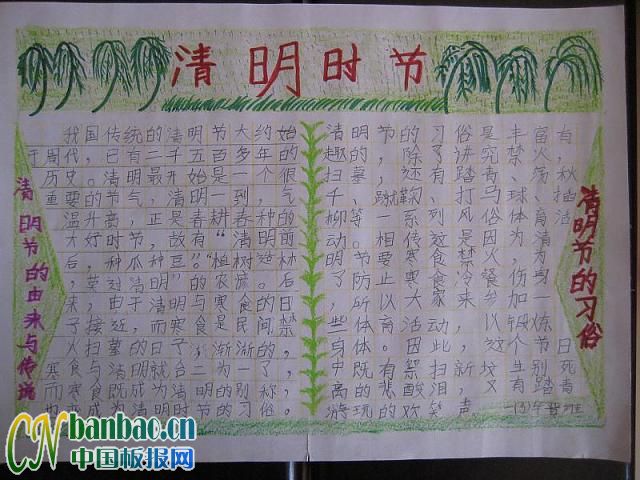 清明时节
清明节的由来与传说
我国传统的清明节大约始
于周代，已有二千五百多年的
历史。清明最开始是一个很
重要的节气，清明一到，气
温升高，正是春耕春种的
大好时节，故有“清明前
后，种瓜种豆”。“植树造林
，莫过清明”的农谚。后
来，由于清明与寒食的日
子接近，而寒食是民间禁
火扫墓的日子，渐渐的，
寒食与清明就合二为一了，
而寒食既成为清明的别称，
也变成为清明时节的习俗。
清明节的习俗是丰富有
趣的，除了讲究禁火，
扫墓，还有踏青、荡秋
千、蹴鞠、打马球、插
柳等一系列风俗体育活
动。相传这是因为清
明节要寒食禁火，为
了防止寒食冷餐伤身
，所以大家来参加一
些体育活动，以锻炼
身体。因此，这个节日
中既有祭扫新坟生别死
离的悲酸泪，又有踏青
游玩的欢笑声
清明节的习俗
CN banbao.cn
中国板报网